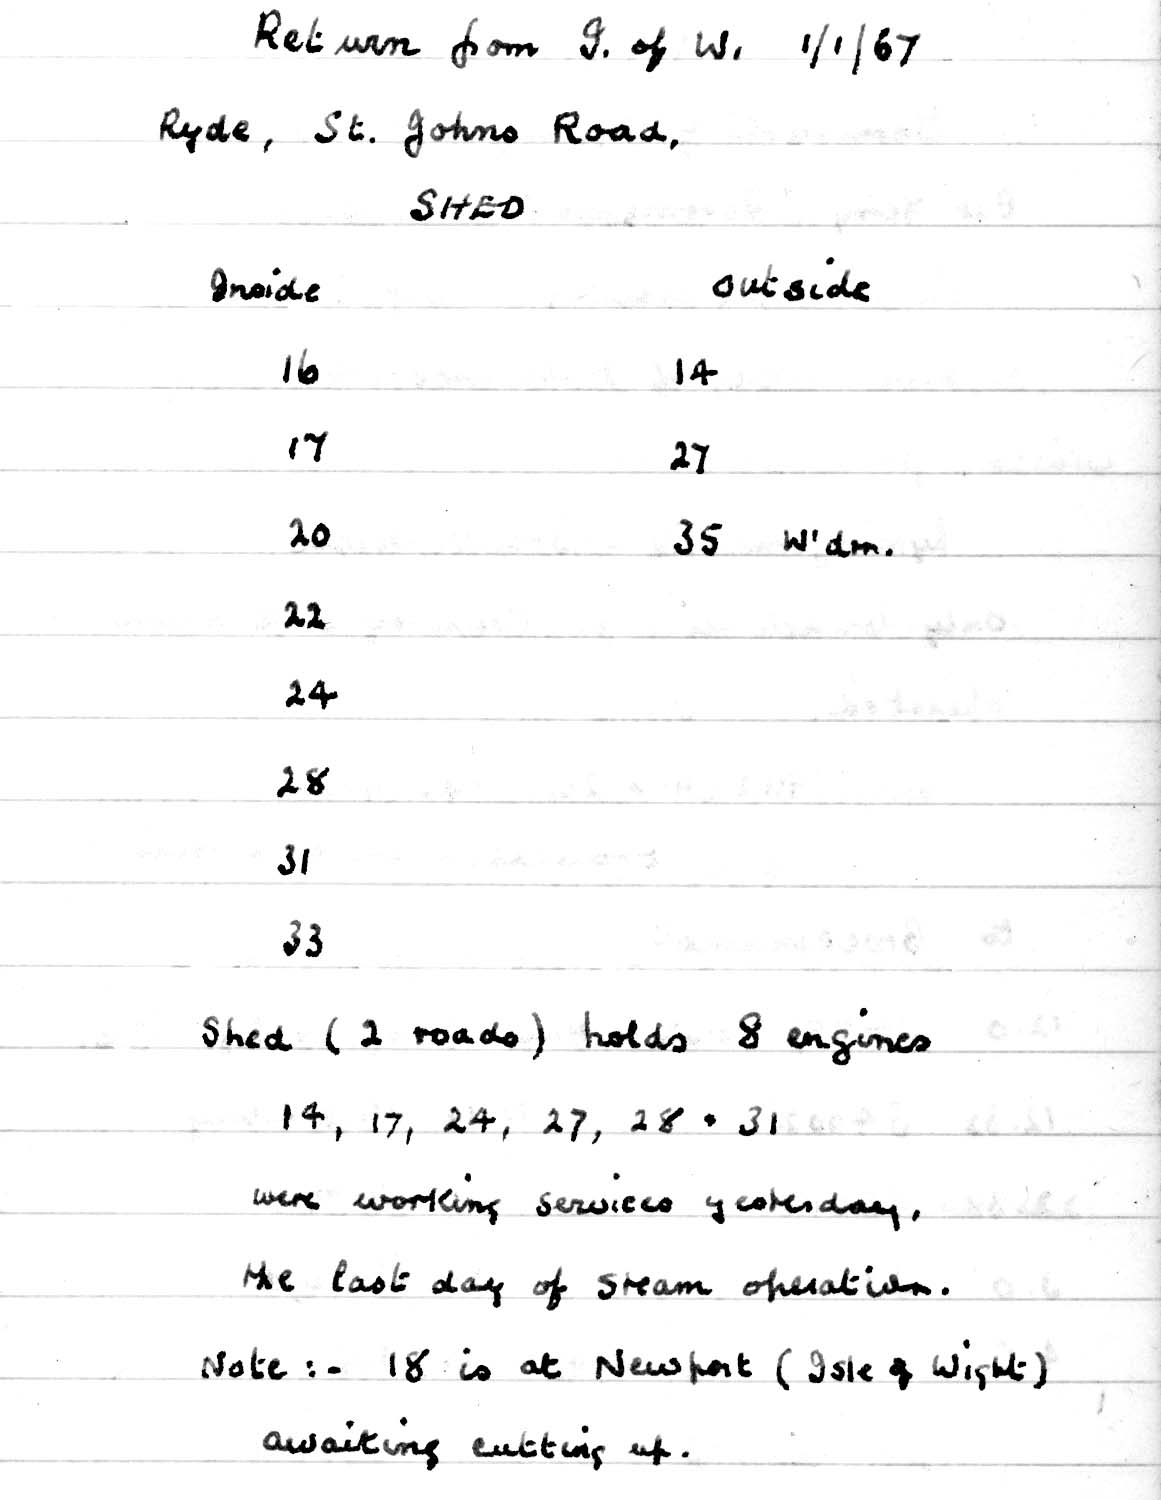 Return from I. of W. 1/1/67
Ryde, St. Johns Road,
SHED
Inside outside
16 14
17 27
20 35 W'dm.
22
24
28
31
33
Shed (2 roads) holds 8 engines
14, 17, 24, 27, 28 • 31
were working services yesterday,
the last day of steam operation.
Note :- 18 is at Newport (Isle of Wight)
awaiting cutting up.